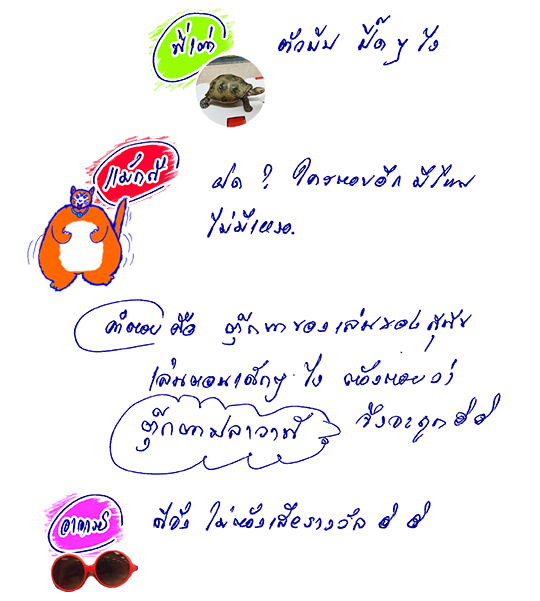 พี่เต่า ตัวมัน ปี๊ด ๆ ไง
แม้กส์ ผิด ? ใครตอบอีก มีไหม
ไม่มีเหรอ.
คำตอบ คือ ตุ๊กตาของเล่นของสุนัข
เล่นตอนเด็กๆ ไง ต้องตอบว่า
ตุ๊กตาปลาวาฬ จึงจะถูก ฮ่ ฮ่
อาจารย์ ดีจัง ไม่ต้องเสียรางวัล ฮ่ ฮ่